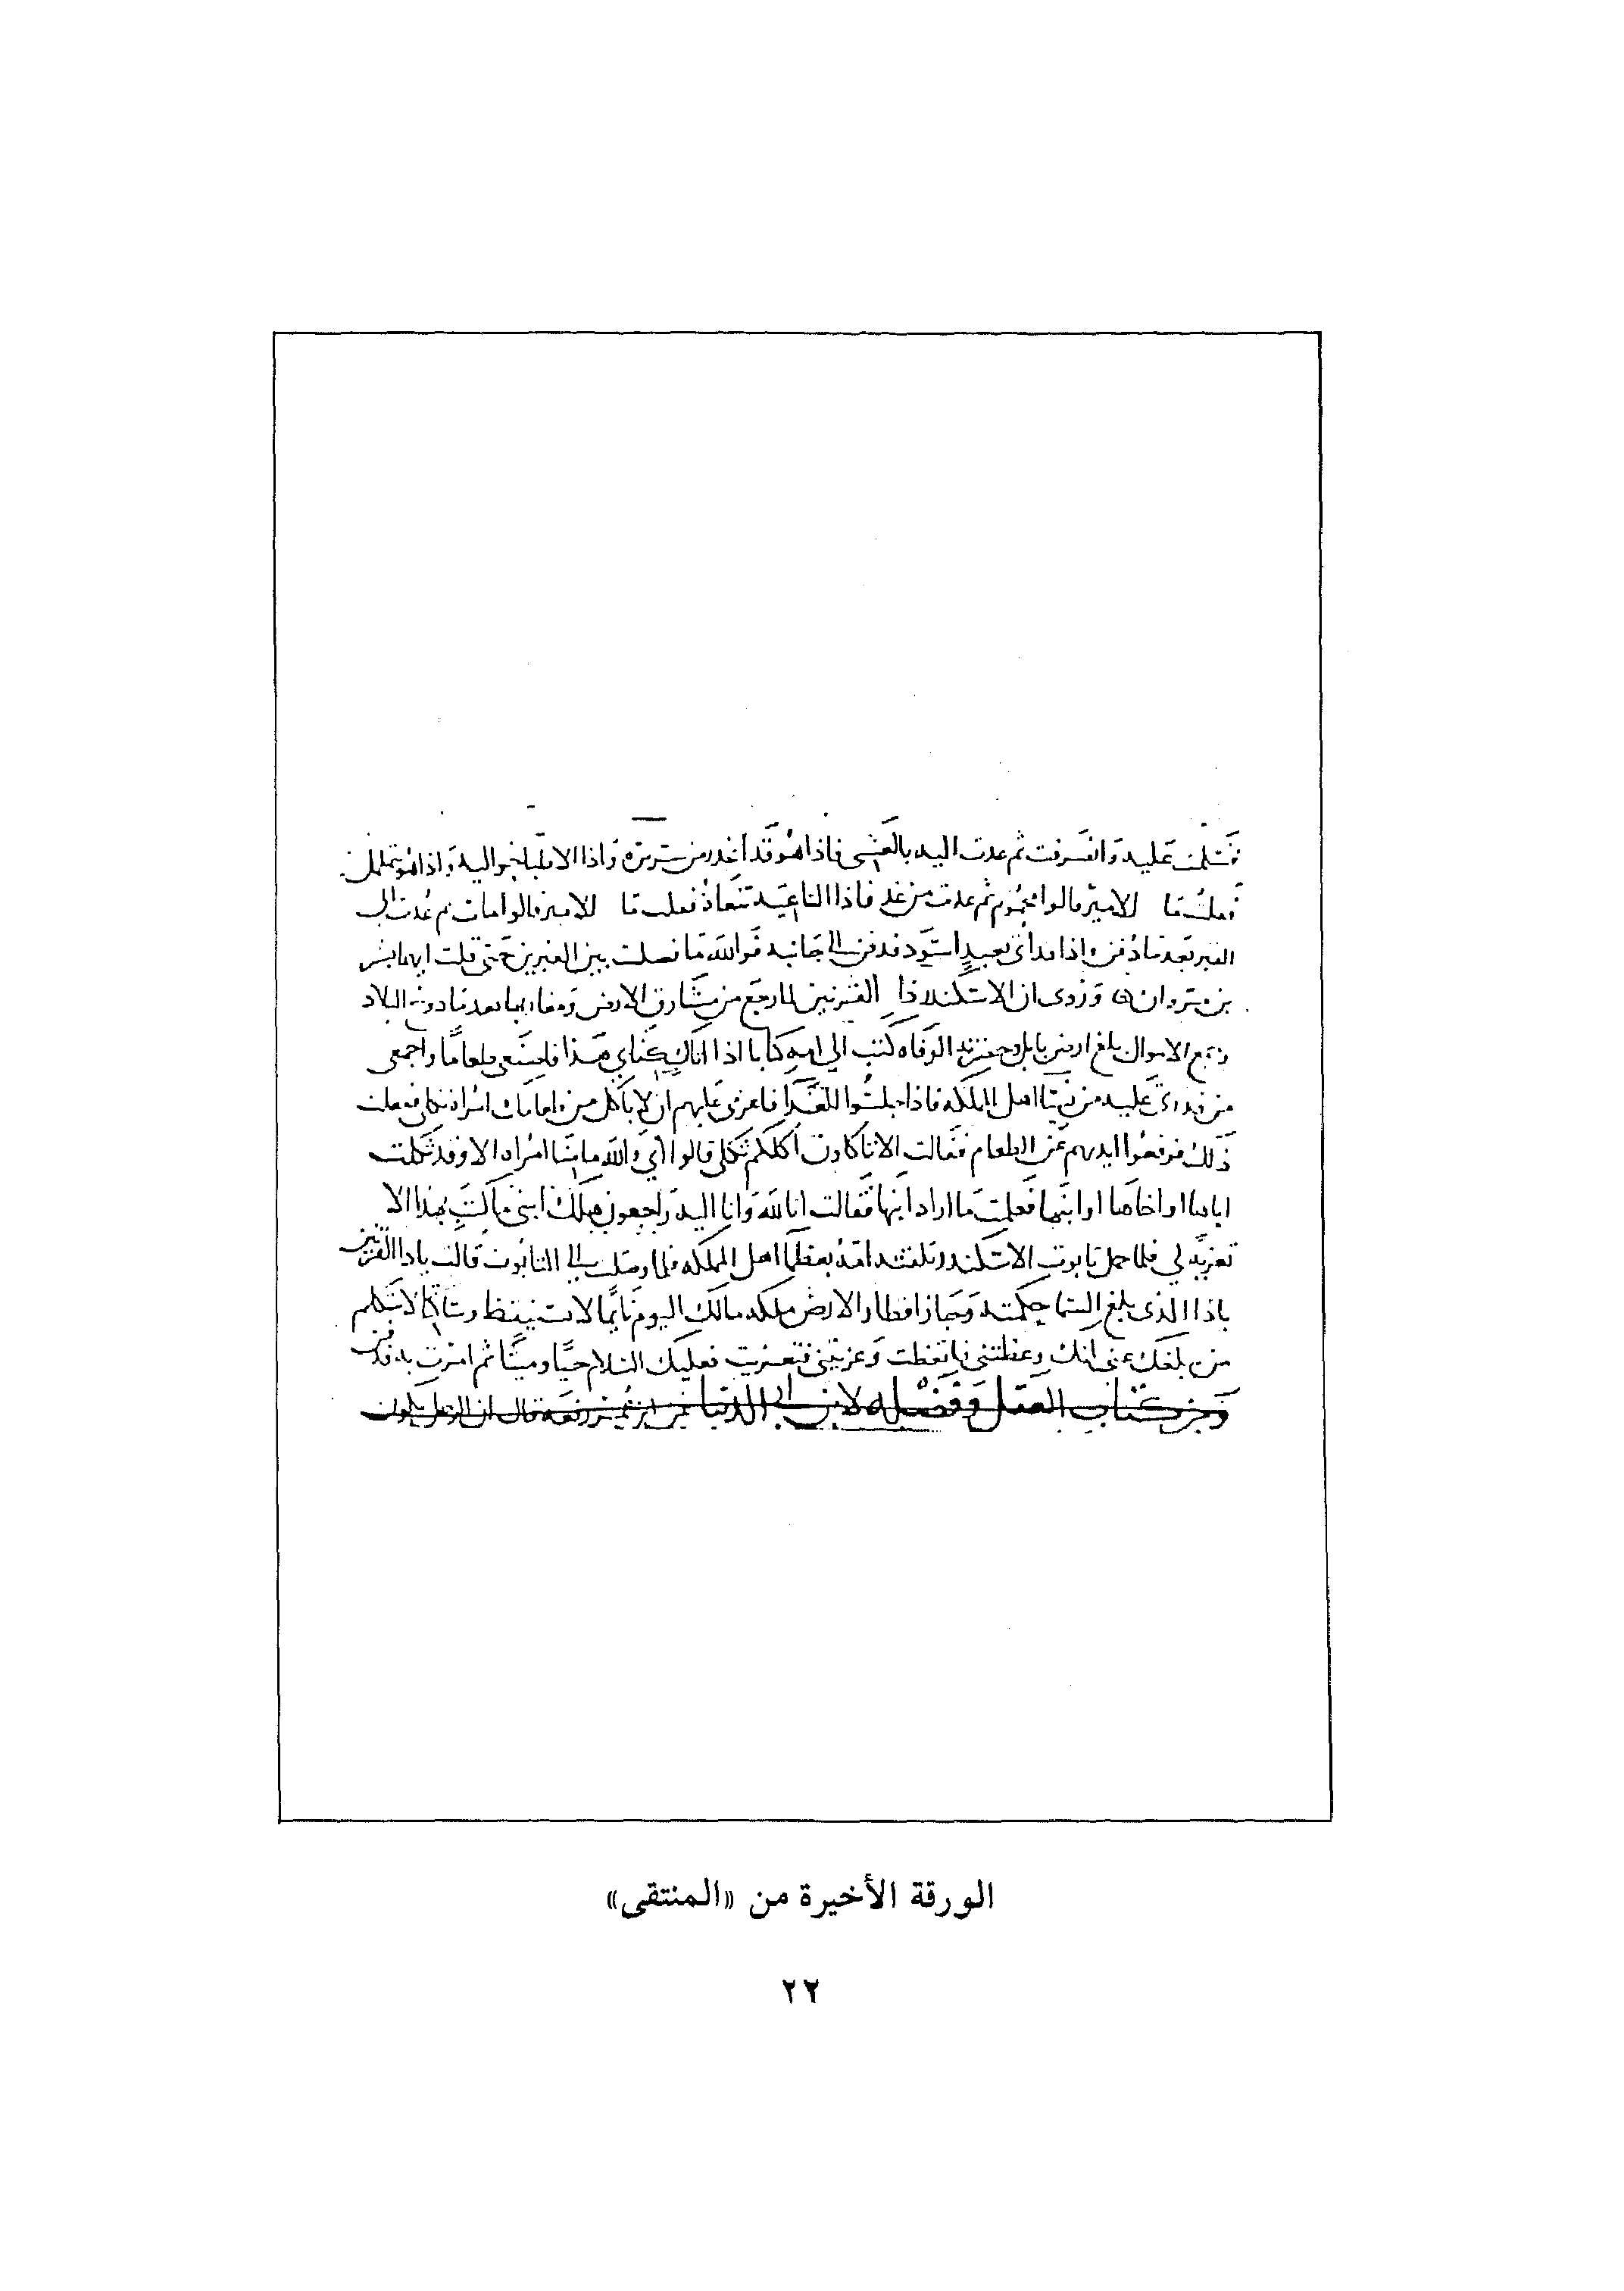 فسلمت عليه وانصرفت ثم عدت اليه بالعشى فاذا هو قد اخدر من سريره واذا الاطبا حواليه واذا هو يتململ
فعلت ما للامير قالوا محموم ثم عدت من غد فاذا الناعية تنعاه فعلت ما للامير قالوا مات ثم عدت الى
القبر بعد ما دفن واذا بعبد اسود قد دفن الى جانبه فوالله ما فصلت بين القبرين حتى قلت ايهما بشر
بن مروان وروى ان الاسكندر ذا القرنين لما رجع من مشارق الارض ومغاربها بعد ما دوخ البلاد
وجمع الاموال بلغ ارض بابل وحضرته الوفاه كتب الى امه كتابا اذا اتاك كتابي هذا فاصنعى طعاما واجمعى
من قدرتى عليه من نسا اهل المملكه فاذا جلسوا للغدا فاعزمى عليهم ان لا ياكل من طعامك امراة ثكلى ففعلت
ذلك فرفعوا ايديهم عن الطعام فقالت الا تاكلون اكلكم ثكلى قالوا اي والله ما منا امراه الا وقد ثكلت
اباها او اخاها او ابنها فعلمت ما اراد ابنها فقالت انا لله وانا اليه راجعون هلك ابنى ما كتب بهذا الا
تعزية لي فلما حمل تابوت الاسكندر تلقته امه بعظما اهل المملكه فلما وصلت الى التابوت قالت يا ذا القرنين
يا ذا الذى بلغ السما حكمته وجاز اقطار الارض ملكه مالك اليوم نايما لا تستيقظ وساكتا لا تتكلم
من بلغك عنى انك وعظتنى فاتعظت وعزيتنى فتعزيت فعليك السلام حيا وميتا ثم امرت به فدفن
ومن كتاب العقل وفضله لابن ابى الدنيا قال ان الرجل
الورقة الأخيرة من «المنتقى»
٢٢